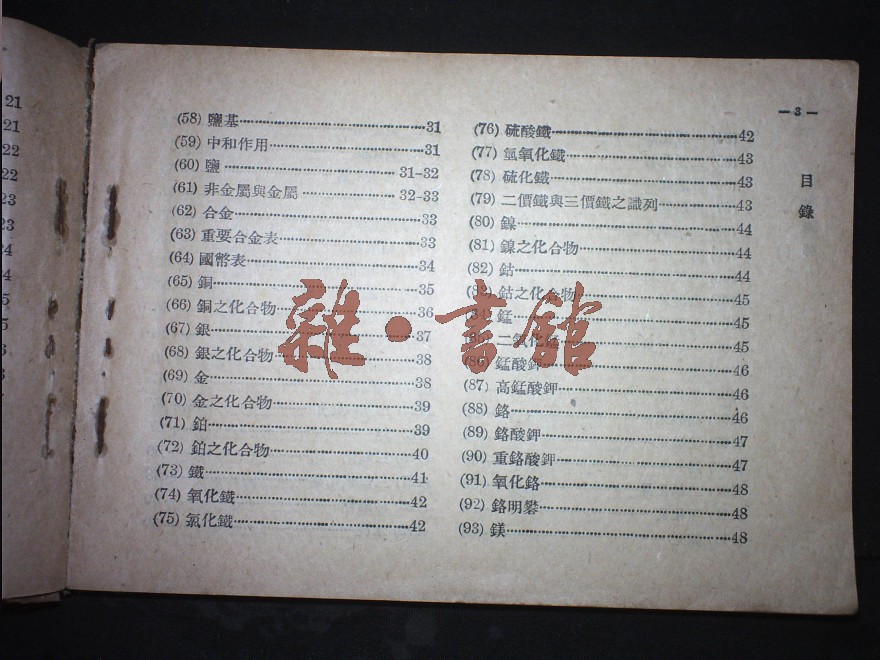 —3—
目錄
(58) 鹽基 31
(59) 中和作用 31
(60) 鹽 31-32
(61) 非金屬與金屬 32-33
(62) 合金 33
(63) 重要合金表 33
(64) 國幣表 34
(65) 銅 35
(66) 銅之化合物 36
(67) 銀 37
(68) 銀之化合物 38
(69) 金 38
(70) 金之化合物 39
(71) 鉑 39
(72) 鉑之化合物 40
(73) 鐵 41
(74) 氧化鐵 42
(75) 氯化鐵 42
(76) 硫酸鐵 42
(77) 氫氧化鐵 43
(78) 硫化鐵 43
(79) 二價鐵與三價鐵之識列 43
(80) 鎳 44
(81) 鎳之化合物 44
(82) 鈷 44
(83) 鈷之化合物 45
錳 45
二氧化錳 45
(86) 錳酸鉀 46
(87) 高錳酸鉀 46
(88) 鉻 46
(89) 鉻酸鉀 47
(90) 重鉻酸鉀 47
(91) 氧化鉻 48
(92) 鉻明礬 48
(93) 鎂 48
雜·書館
21
21
22
22
23
23
24
24